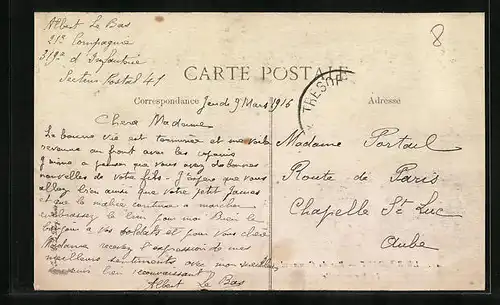 Albert Le Bas
21e Compagnie
319e d'Infanterie
Secteur Postal 41
8
CARTE POSTALE
TRESOR
Correspondance
Jeudi 9 Mars 1916
Adresse
Chere Madame
La bonne vie est terminée et me voila
revenu au front avec les
J'aime a penser que vous avez de bonnes
nouvelles de votre fils. J'espère que vous
allez bien ainsi que votre petit James
et que la continue a marcher
embrassez le bien pour moi Bien le
bonjour a vos soldats et pour vous chère
Madame recevez l'expression de mes
meilleurs sentiments avec mon meilleur
souvenir bien reconnaissant
Albert Le Bas
Madame Portal
Route de Paris
Chapelle St Luc
Aube